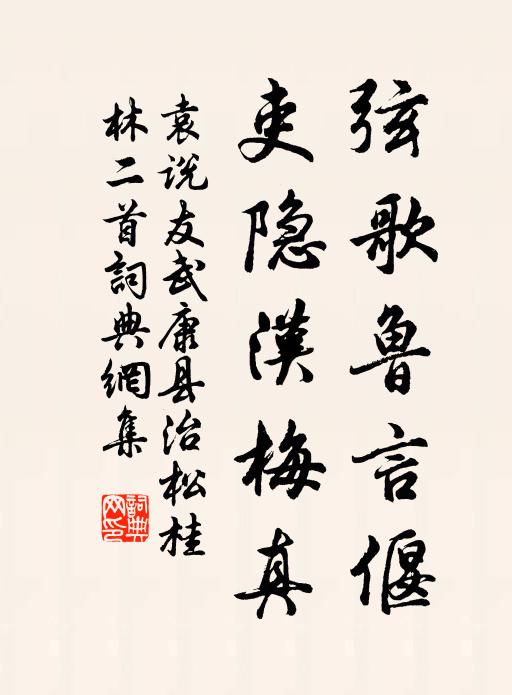 弦歌鲁言偃
吏隐漢梅真
袁说友武康县治松桂
林二首詞典網集
詞典
网印